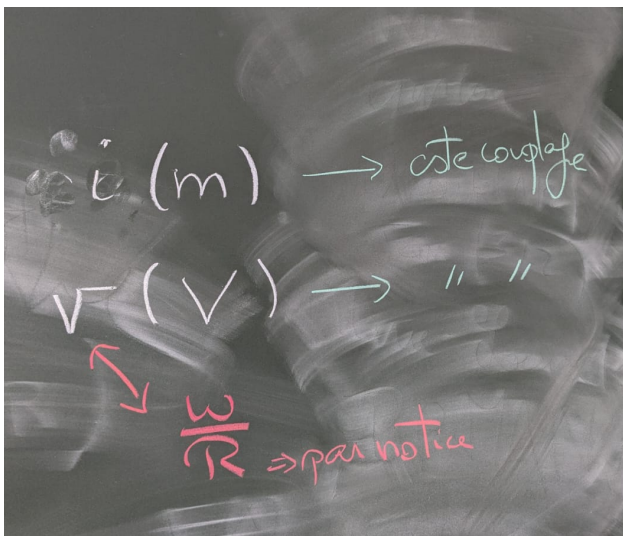 i (m) → cste couplage
v (V) → " "
↔ W/R ⇒ par notice